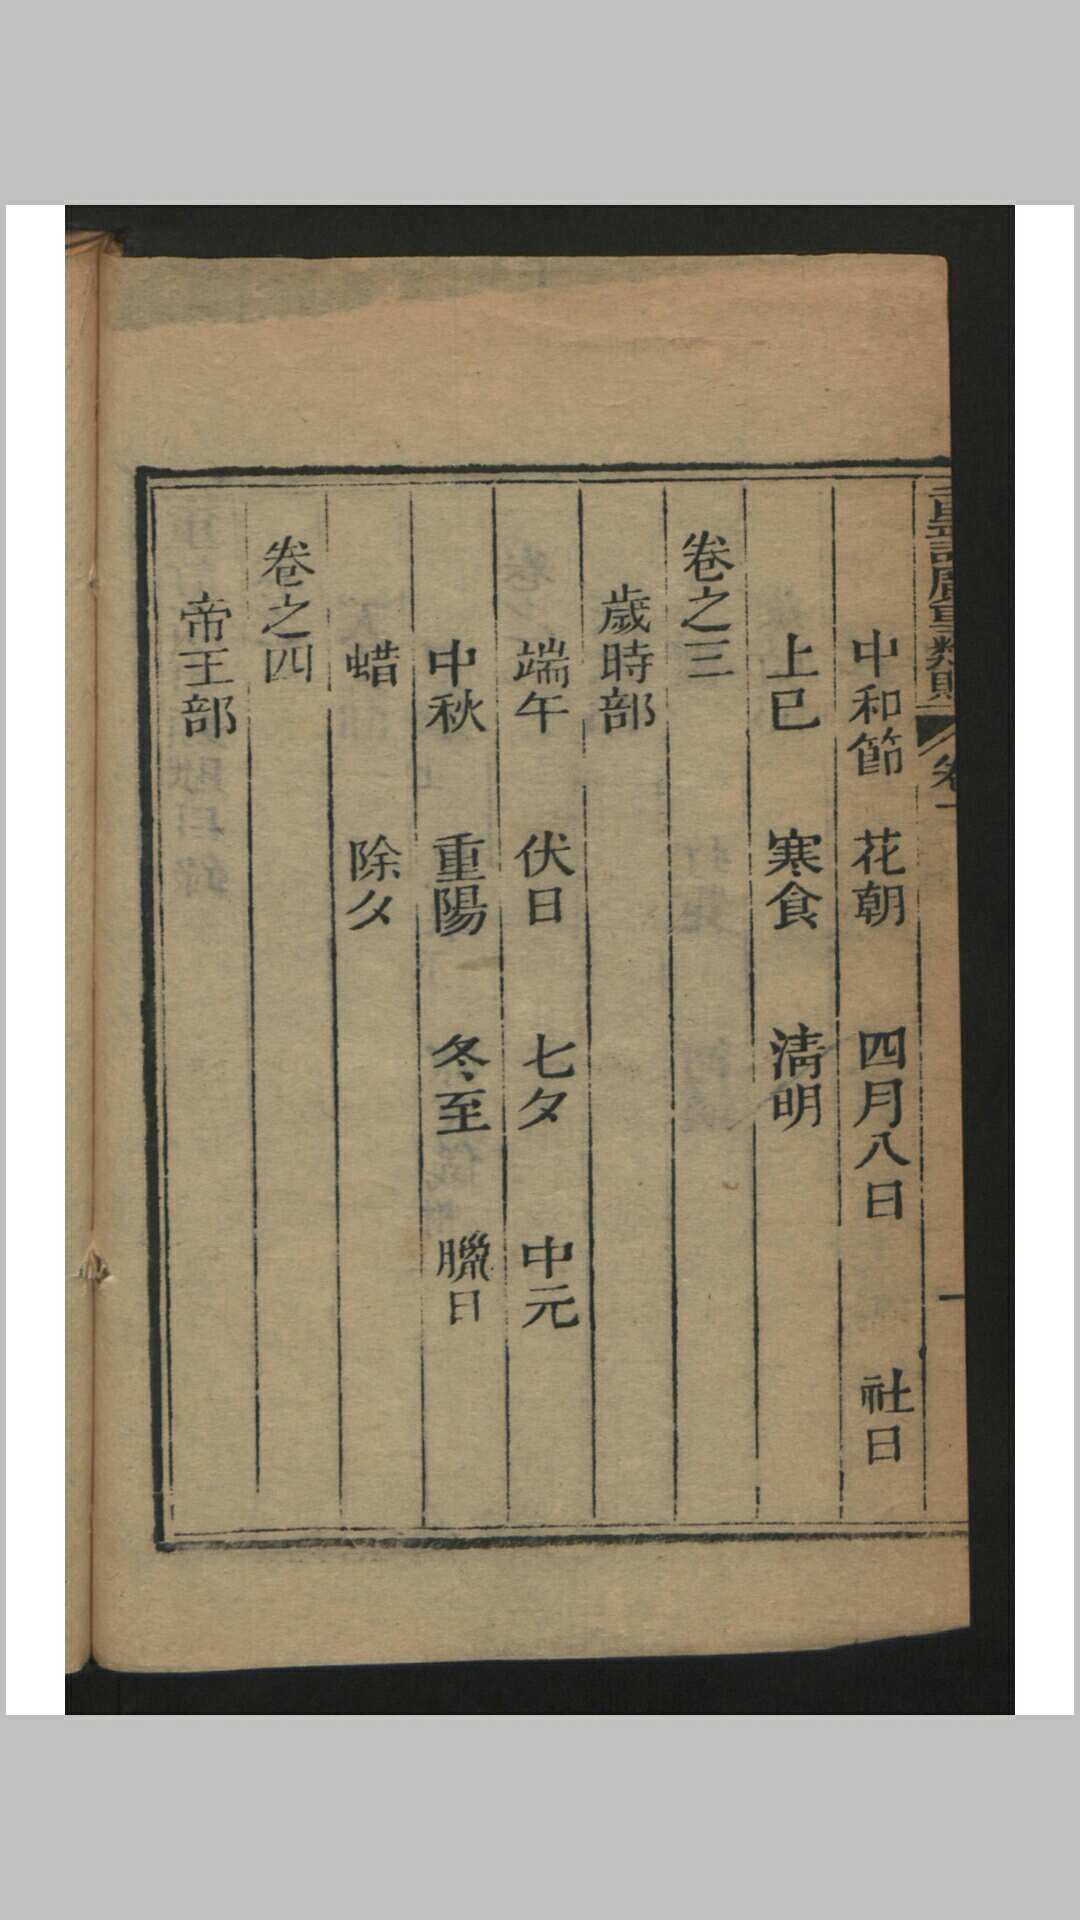 中和節 花朝 四月八日 社日
上巳 寒食 清明
卷之三
歲時部
端午 伏日 七夕 中元
中秋 重陽 冬至 臘日
蜡 除夕
卷之四
帝王部